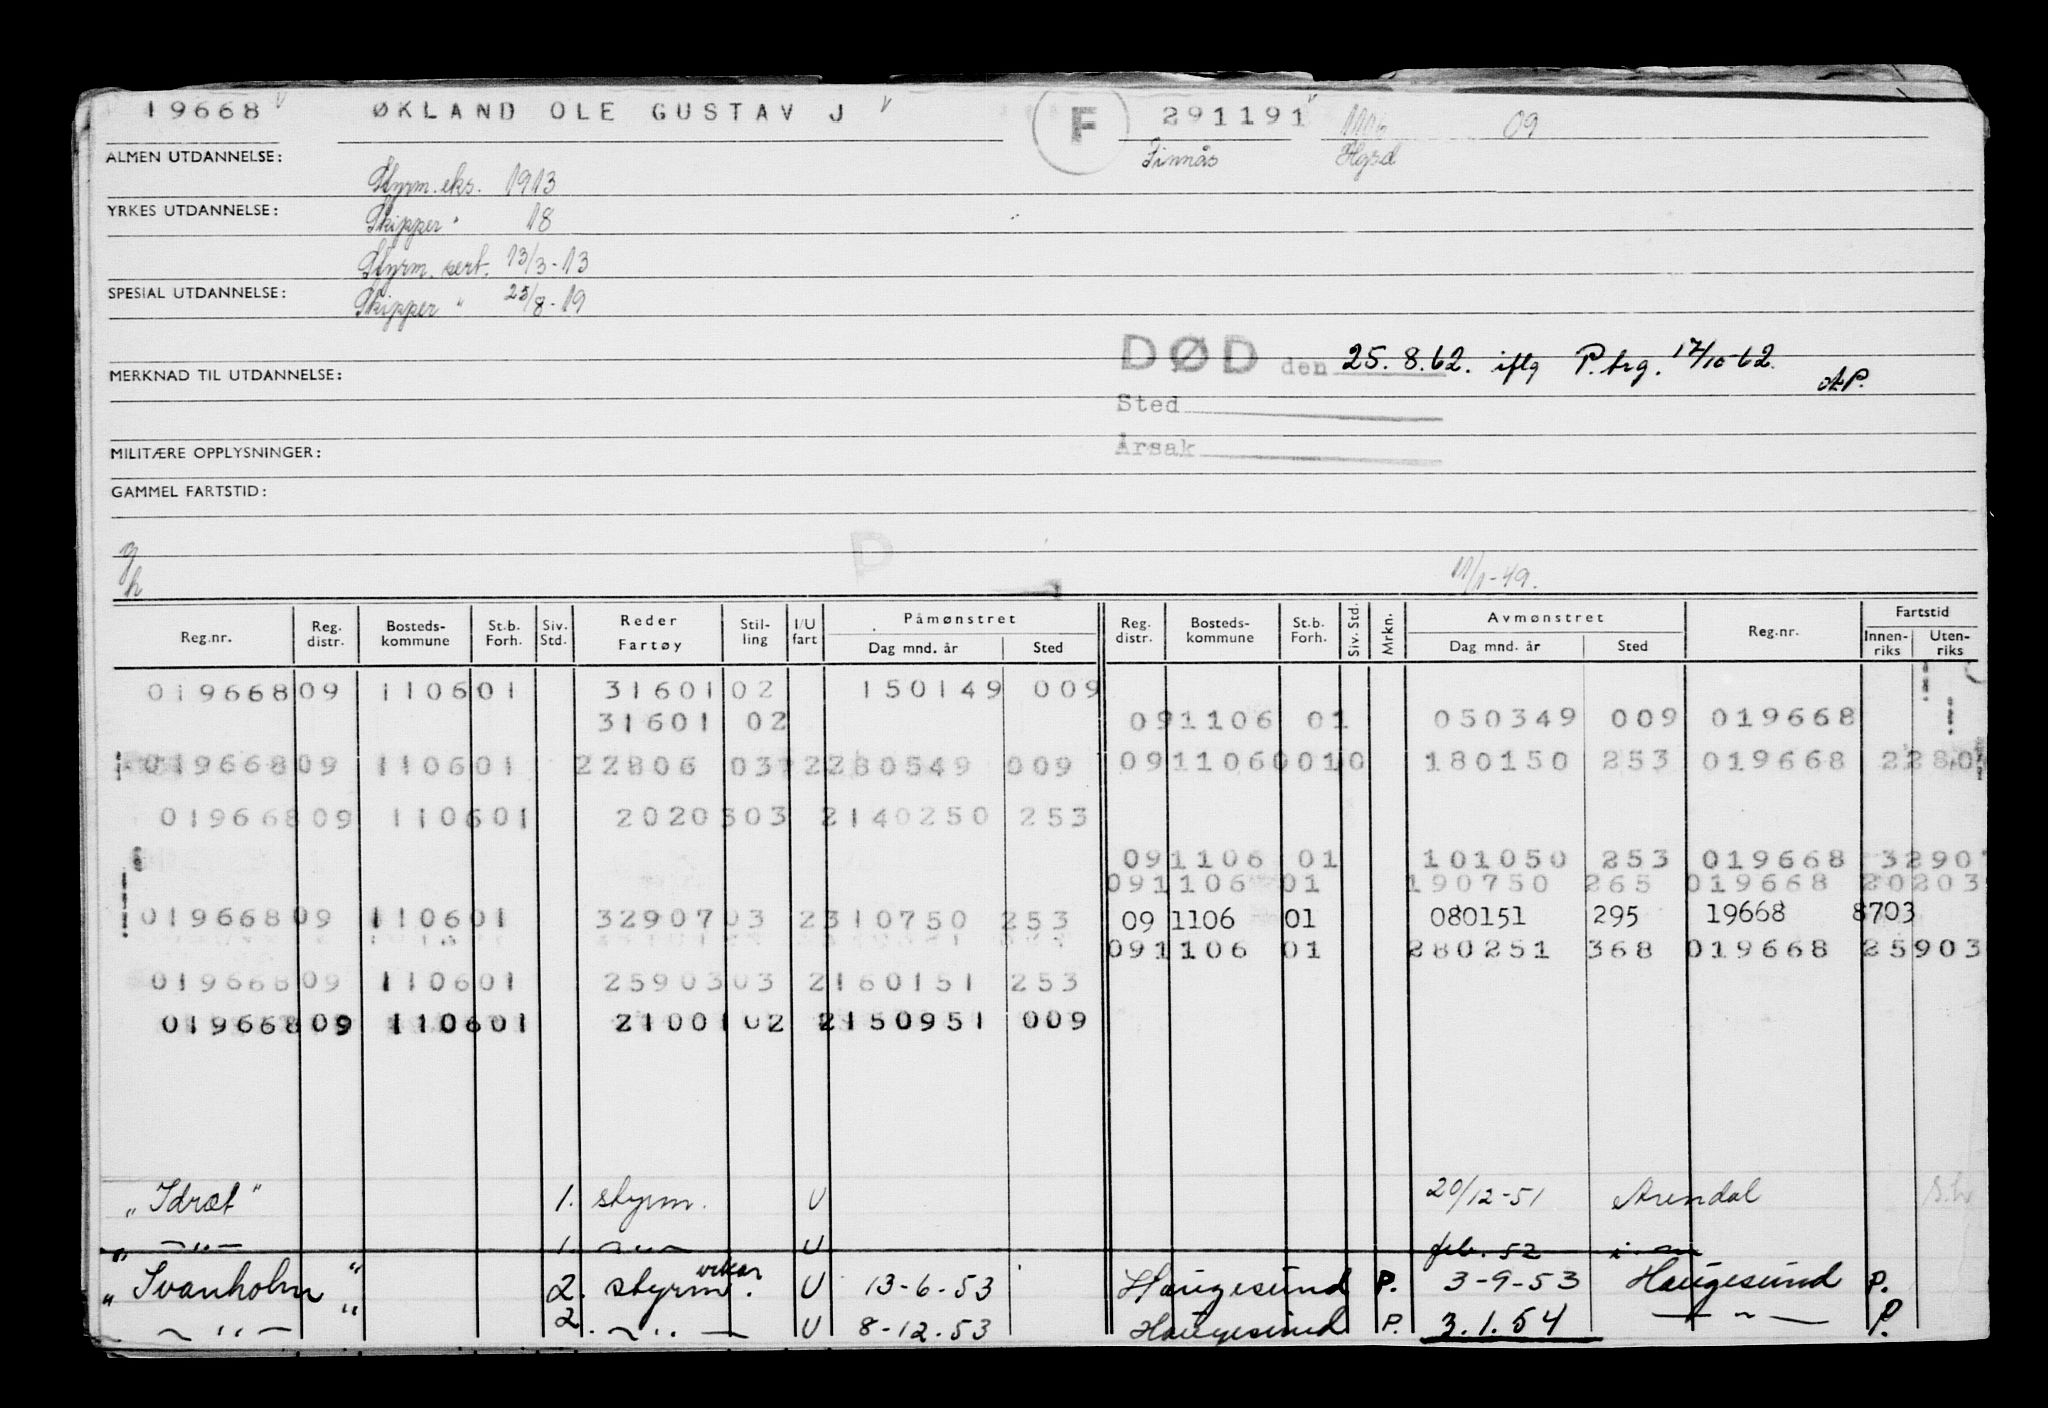 19668 ØKLAND OLE GUSTAV J F 291191 1106 09
ALMEN UTDANNELSE: Finnås Hgsd
Styrm. eks. 1913
YRKES UTDANNELSE: Skipper " 18
Styrm. sert. 13/3-13
SPESIAL UTDANNELSE: Skipper " 25/8-19
DØD den 25.8.62. iflg P.brg. 17/10-62.
MERKNAD TIL UTDANNELSE: AP.
Sted
Årsak
MILITÆRE OPPLYSNINGER:
GAMMEL FARTSTID:
g/h P 11/1-49.
Reg.nr. Reg. distr. Bosteds-kommune St.b. Forh. Siv. Std. Reder Fartøy Stil-ling I/U fart Påmønstret Dag mnd. år Sted Reg. distr. Bosteds-kommune St.b. Forh. Siv. Std. Mrkn. Avmønstret Dag mnd. år Sted Reg.nr. Fartstid Innen-riks Uten-riks
019668 09 1106 01 31601 02 150149 009
31601 02 09 1106 01 050349 009 019668
019668 09 1106 01 22806 03 2 280549 009 09 1106 0010 180150 253 019668 2280
019668 09 1106 01 20203 03 2 140250 253
09 1106 01 101050 253 019668 32907
09 1106 01 190750 265 019668 20203
019668 09 1106 01 32907 03 2 310750 253 09 1106 01 080151 295 19668 8703
09 1106 01 280251 368 019668 25903
019668 09 1106 01 25903 03 2 160151 253
019668 09 1106 01 21001 02 2 150951 009
"Idræt" 1. styrm. U 20/12-51 Arendal
" —"— 1. —"— U feb. 52
"Ivanholm" 2. styrm. vikar U 13-6-53 Haugesund P. 3-9-53 Haugesund P.
— " — 2. — " — U 8-12.53 Haugesund P. 3.1.54 — " — P.